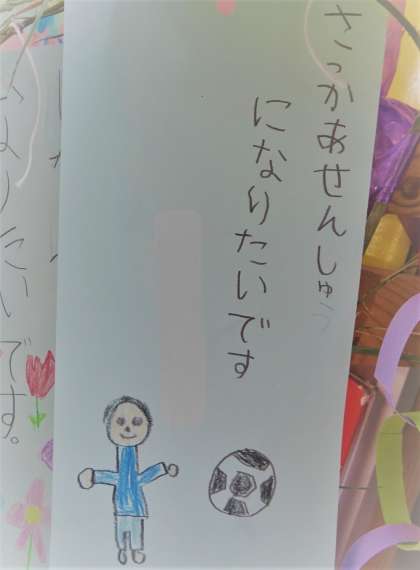 さっかあせんしゅう
になりたいです
なりたいです。